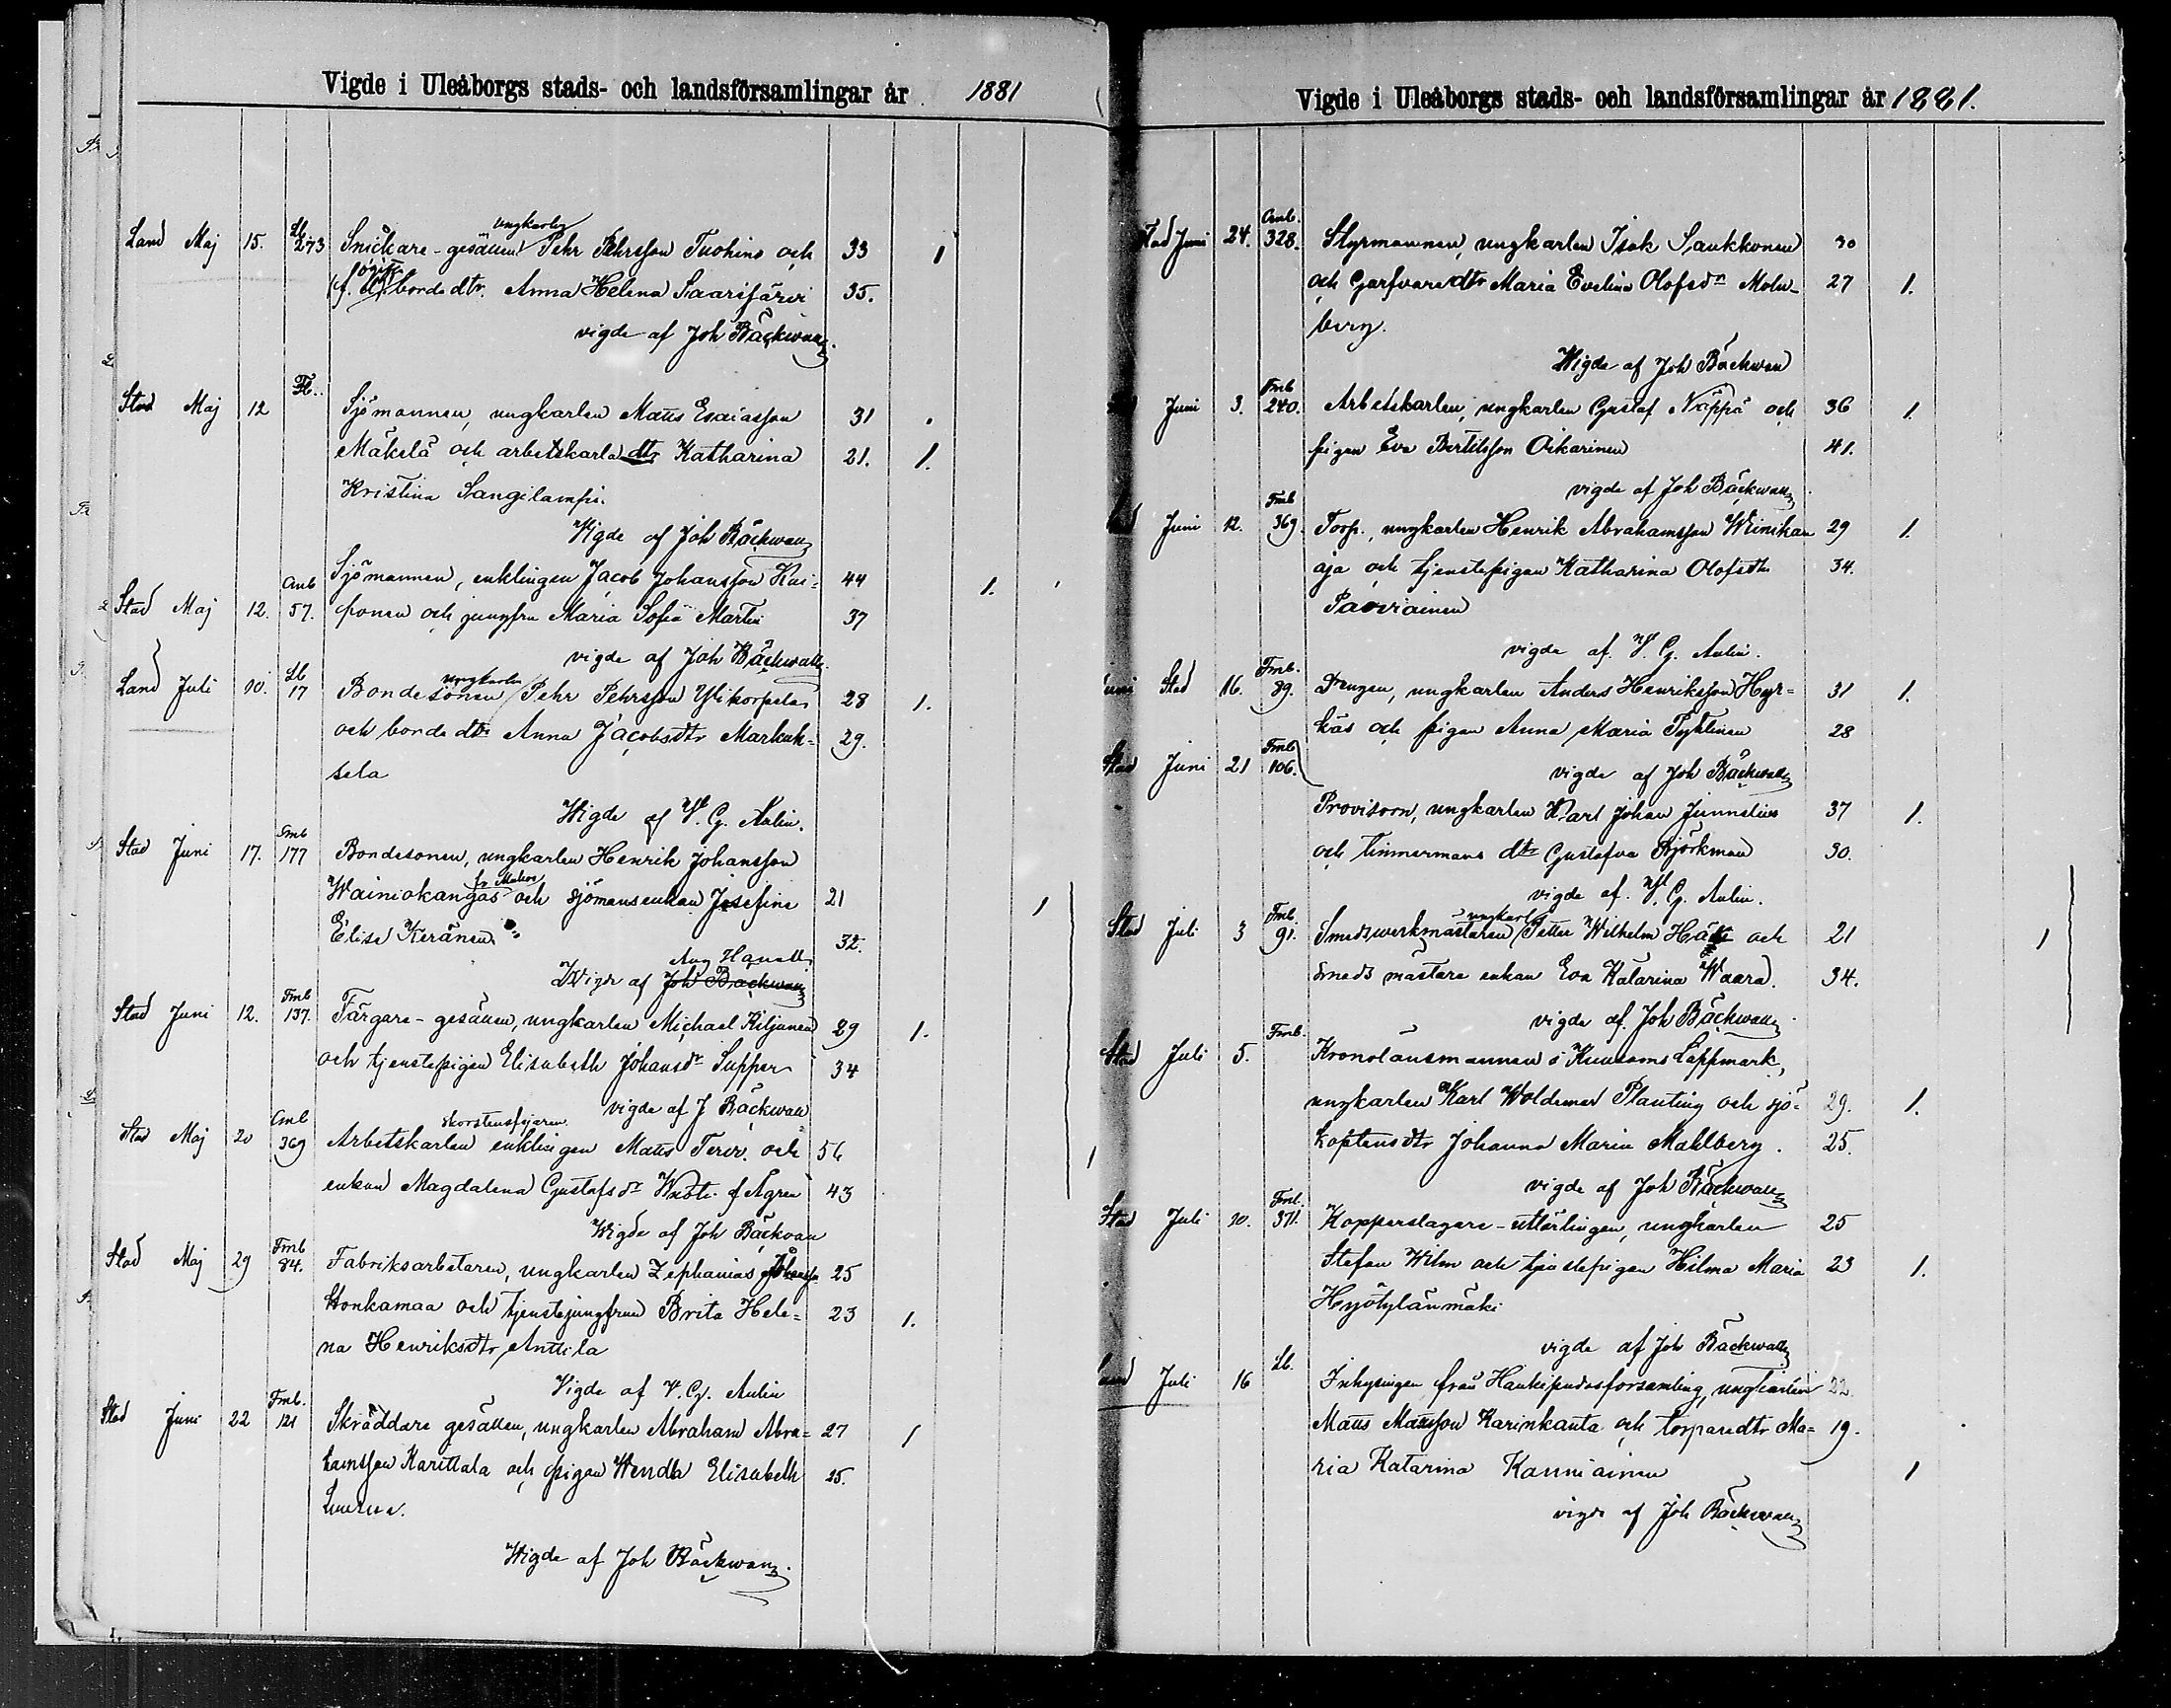 Vigde i Uleåborgs stads- och landsförsamlingar år 1881
ungkarlen
Land Maj 15. Lb 273 Snickare-gesällen Pehr Pehrsson Tuohino och 33 1
bonde dtr. Anna Helena Saarijärvi 35.
vigde af Joh Bäckwall.
Stad Maj 12 Sjömannen, ungkarlen Matts Esaiasson 31
Mäkelä och arbetskarls dtr Katharina 21. 1.
Kristina Sangilampi.
Vigde af Joh Bäckwall
Sjömannen, enklingen Jacob Johansson Kai- 44 1.
Stad Maj 12. Amb 57. ponen och jungfru Maria Sofia Martin 37
vigde af Joh Bäckwall.
ungkarlen
Land Juli 10. Lb 17 Bondesonen Pehr Pehrsson Ylikorpela 28 1.
och bonde dtr Anna Jacobsdtr Markuk- 29.
sela
Wigde af V. G. Aulin.
Stad Juni 17. Fmb 177 Bondesonen, ungkarlen Henrik Johansson
Wainiokangas och sjömansenkan Josefina 21 1
Elise Keränen 32.
Wigde af Joh Bäckwall
Stad Juni 12. Fmb 137. Färgare-gesällen, ungkarlen Michael Kiljunen 29 1.
och tjenstepigan Elisabeth Johansdr Supper 34
vigde af J Bäckwall
skorstensfejaren
Stad Maj 20 Amb 369 Arbetskarlen enklingen Matts Terv. och 56 1
enkan Magdalena Gustafsdr f Ågren 43
Wigde af Joh Bäckwall
Stad Maj 29 Fmb 84. Fabriksarbetaren, ungkarlen Zephanias Johansson 25
Honkamaa och tjenstejungfrun Brita Hele- 23 1.
na Henriksdtr Anttila
Vigde af V. G. Aulin
Stad Juni 22 Fmb. 121 Skräddare gesällen, ungkarlen Abraham Abra- 27 1
hamsson Karittala och pigan Wendla Elisabeth 25.
Wigde af Joh Bäckwall.
Vigde i Uleåborgs stads- och landsförsamlingar år 1881.
Stad Juni 24. Amb. 328. Styrmannen, ungkarlen Isak Saukkonen 30
och Garfvaredtr Maria Evelina Olofsdr Moln- 27 1.
berg.
Wigde af Joh Bäckwall
Juni 3. Fmb 240. Arbetskarlen, ungkarlen Gustaf Näppä och 36 1.
pigan Eva Bertilsson Oikarinen 41.
vigde af Joh Bäckwall
Juni 12. Fmb 369. Torp., ungkarlen Henrik Abrahamsson Wiinikan 29 1.
oja och tjenstepigan Katharina Olofsdtr 34.
Paaviainen
vigde af. V. G. Aulin.
Juni Stad 16. Fmb. 89. Drengen, ungkarlen Anders Henriksson Hyr- 31 1.
käs och pigan Anna Maria Tyklinen 28
Stad Juni 21 Fmb 106. vigde af Joh Bäckwall
Provisorn, ungkarlen Karl Johan Junnelius 37 1.
och timmermans dtr Gustafva Björkman 30.
vigde af. V. G. Aulin.
ungkarlen
Stad Juli 3 Fmb. 91. Smedsverkmästaren Petter Wilhelm och 21 1
smeds mästare enkan Eva Katarina Waara. 34.
vigde af. Joh Bäckwall
Stad Juli 5. Fmb. Kronolänsmannen i Kuusamo Lappmark,
ungkarlen Karl Woldemar Planting och sjö- 29. 1.
kaptensdtr Johanna Maria Mahlberg. 25.
vigde af Joh Bäckwall
Stad Juli 10. Fmb. 371. Kopparslagare-utlärlingen, ungkarlen 25
Stefan Wilm och tjenstepigan Hilma Maria 23 1.
Hyötylänmäki
vigde af Joh Bäckwall
Land Juli 16 Lb. Inhysingen från Haukipudas församling, ungkarlen 22.
Matts Mattsson Karinkanta och torparedtr Ma- 19.
ria Katarina Kanniainen 1
vigde af Joh Bäckwall